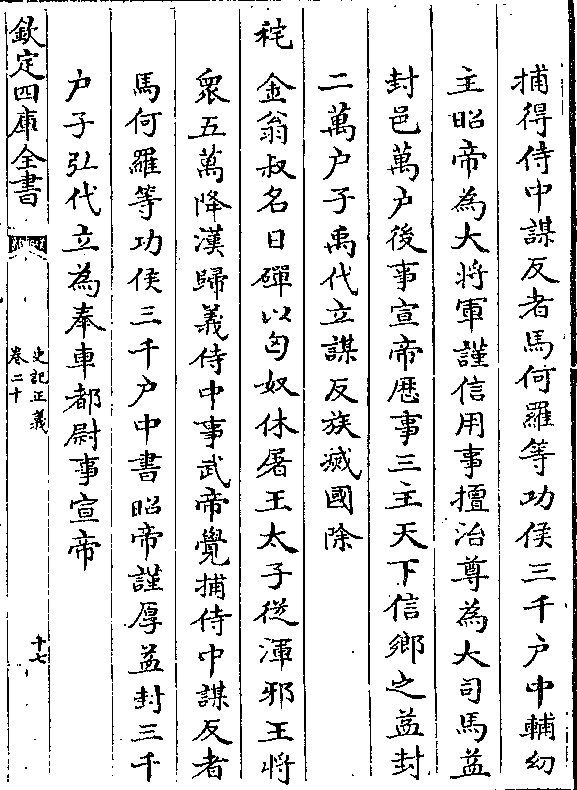 捕得侍中謀反者馬何羅等功侯三千户中輔㓜
主昭帝為大将軍謹信用事擅治尊為大司馬益
封邑萬户後事宣帝歴事三主天下信鄉之益封
二萬户子禹代立謀反族滅國除
秺 金翁叔名日磾以匈奴休屠王太子從渾邪王將
衆五萬降漢歸義侍中事武帝覺捕侍中謀反者
馬何羅等功侯三千户中書昭帝謹厚益封三千
户子弘代立為奉車都尉事宣帝
欽定四庫全書
史記正義
卷二十
十七